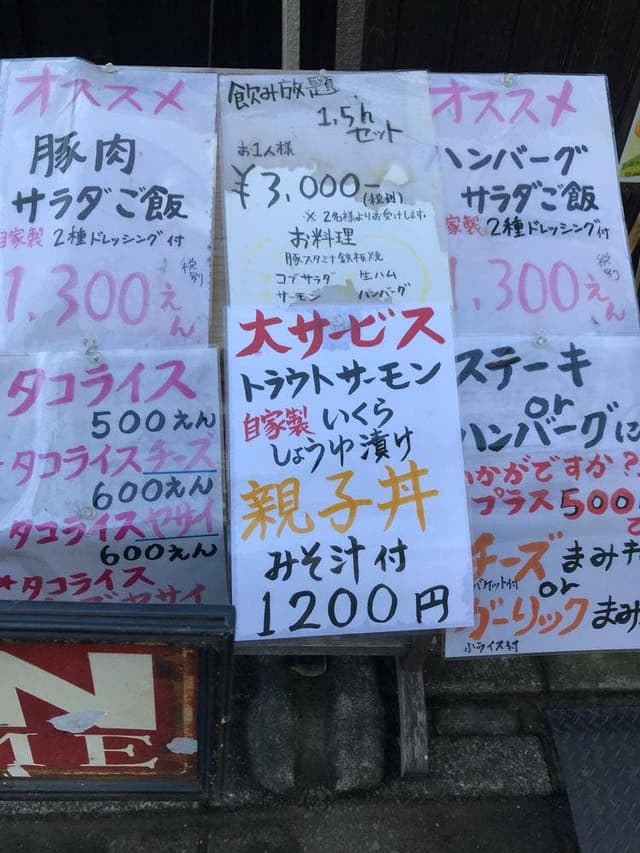 オススメ
豚肉
サラダご飯
自家製 2種ドレッシング付
税別
1,300えん
飲み放題
1.5h
セット
お1人様
¥3,000-
(税別)
※ 2名様よりお受けします。
お料理
豚スタミナ鉄板焼
コブサラダ 生ハム
サーモン ハンバーグ
オススメ
ハンバーグ
サラダご飯
家製 2種ドレッシング付
税別
1,300えん
タコライス
500えん
タコライスチーズ
600えん
タコライスヤサイ
600えん
★タコライス
ヤサイ
大サービス
トラウトサーモン
自家製 いくら
しょうゆ漬け
親子丼
みそ汁付
1200円
ステーキ
or
ハンバーグに
いかがですか?
プラス500
チーズ まみれ
バケット付
or
ガーリック まみ
小ライス付
N
ME